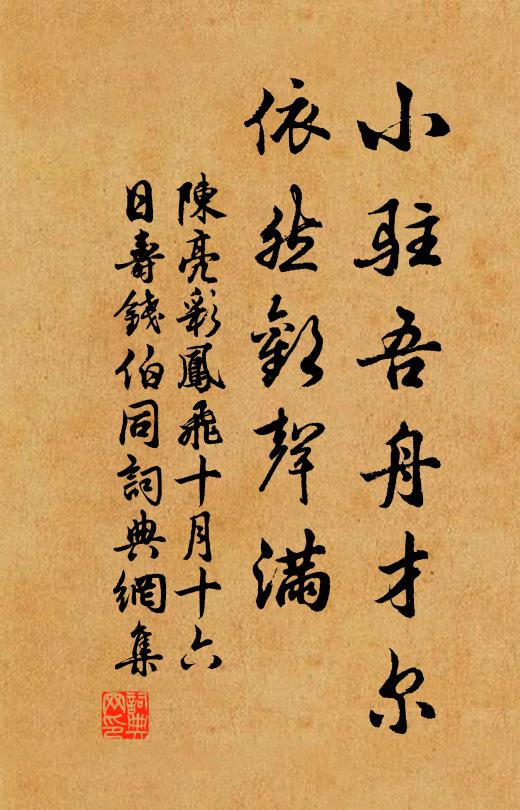 小驻吾舟才尔
依然歡聲满
陳亮彩鳳飛十月十六
日壽錢伯同詞典網集
詞典網印